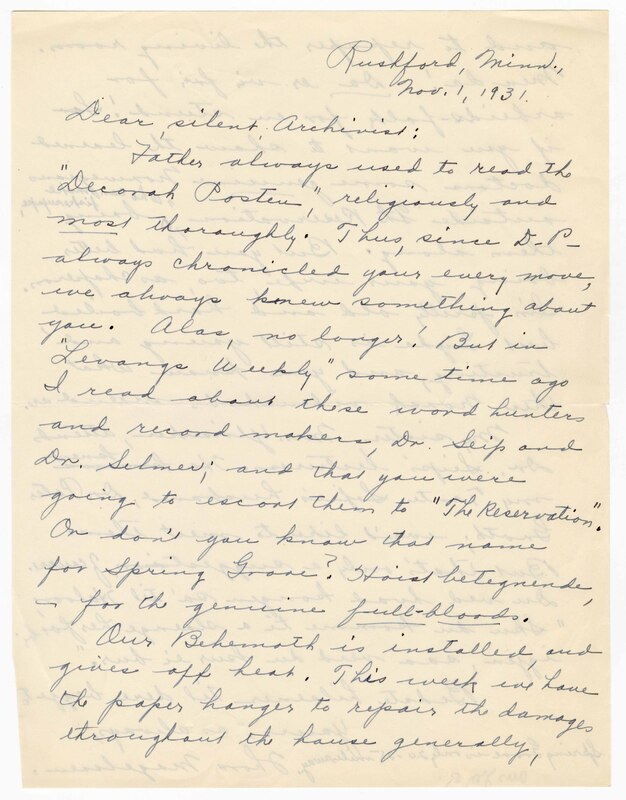 Rushford, Minn.,
Nov. 1, 1931.
Dear, silent, Archivist:
Father always used to read the
"Decorah Posten," religiously and
most thoroughly. Thus, since D-P-
always chronicled your every move,
we always knew something about
you. Alas, no longer! But in
"Levangs Weekly" some time ago
I read about these word hunters
and record makers, Dr. Seip and
Dr. Selmer; and that you were
going to escort them to "The Reservation".
Or don't you know that name
for Spring Grove? Hoist betegnende,
– for th genuine full-bloods.
Our Behemoth is installed, and
gives off heat. This week we have
the paper hanger to repair the damages
throughout the house generally,